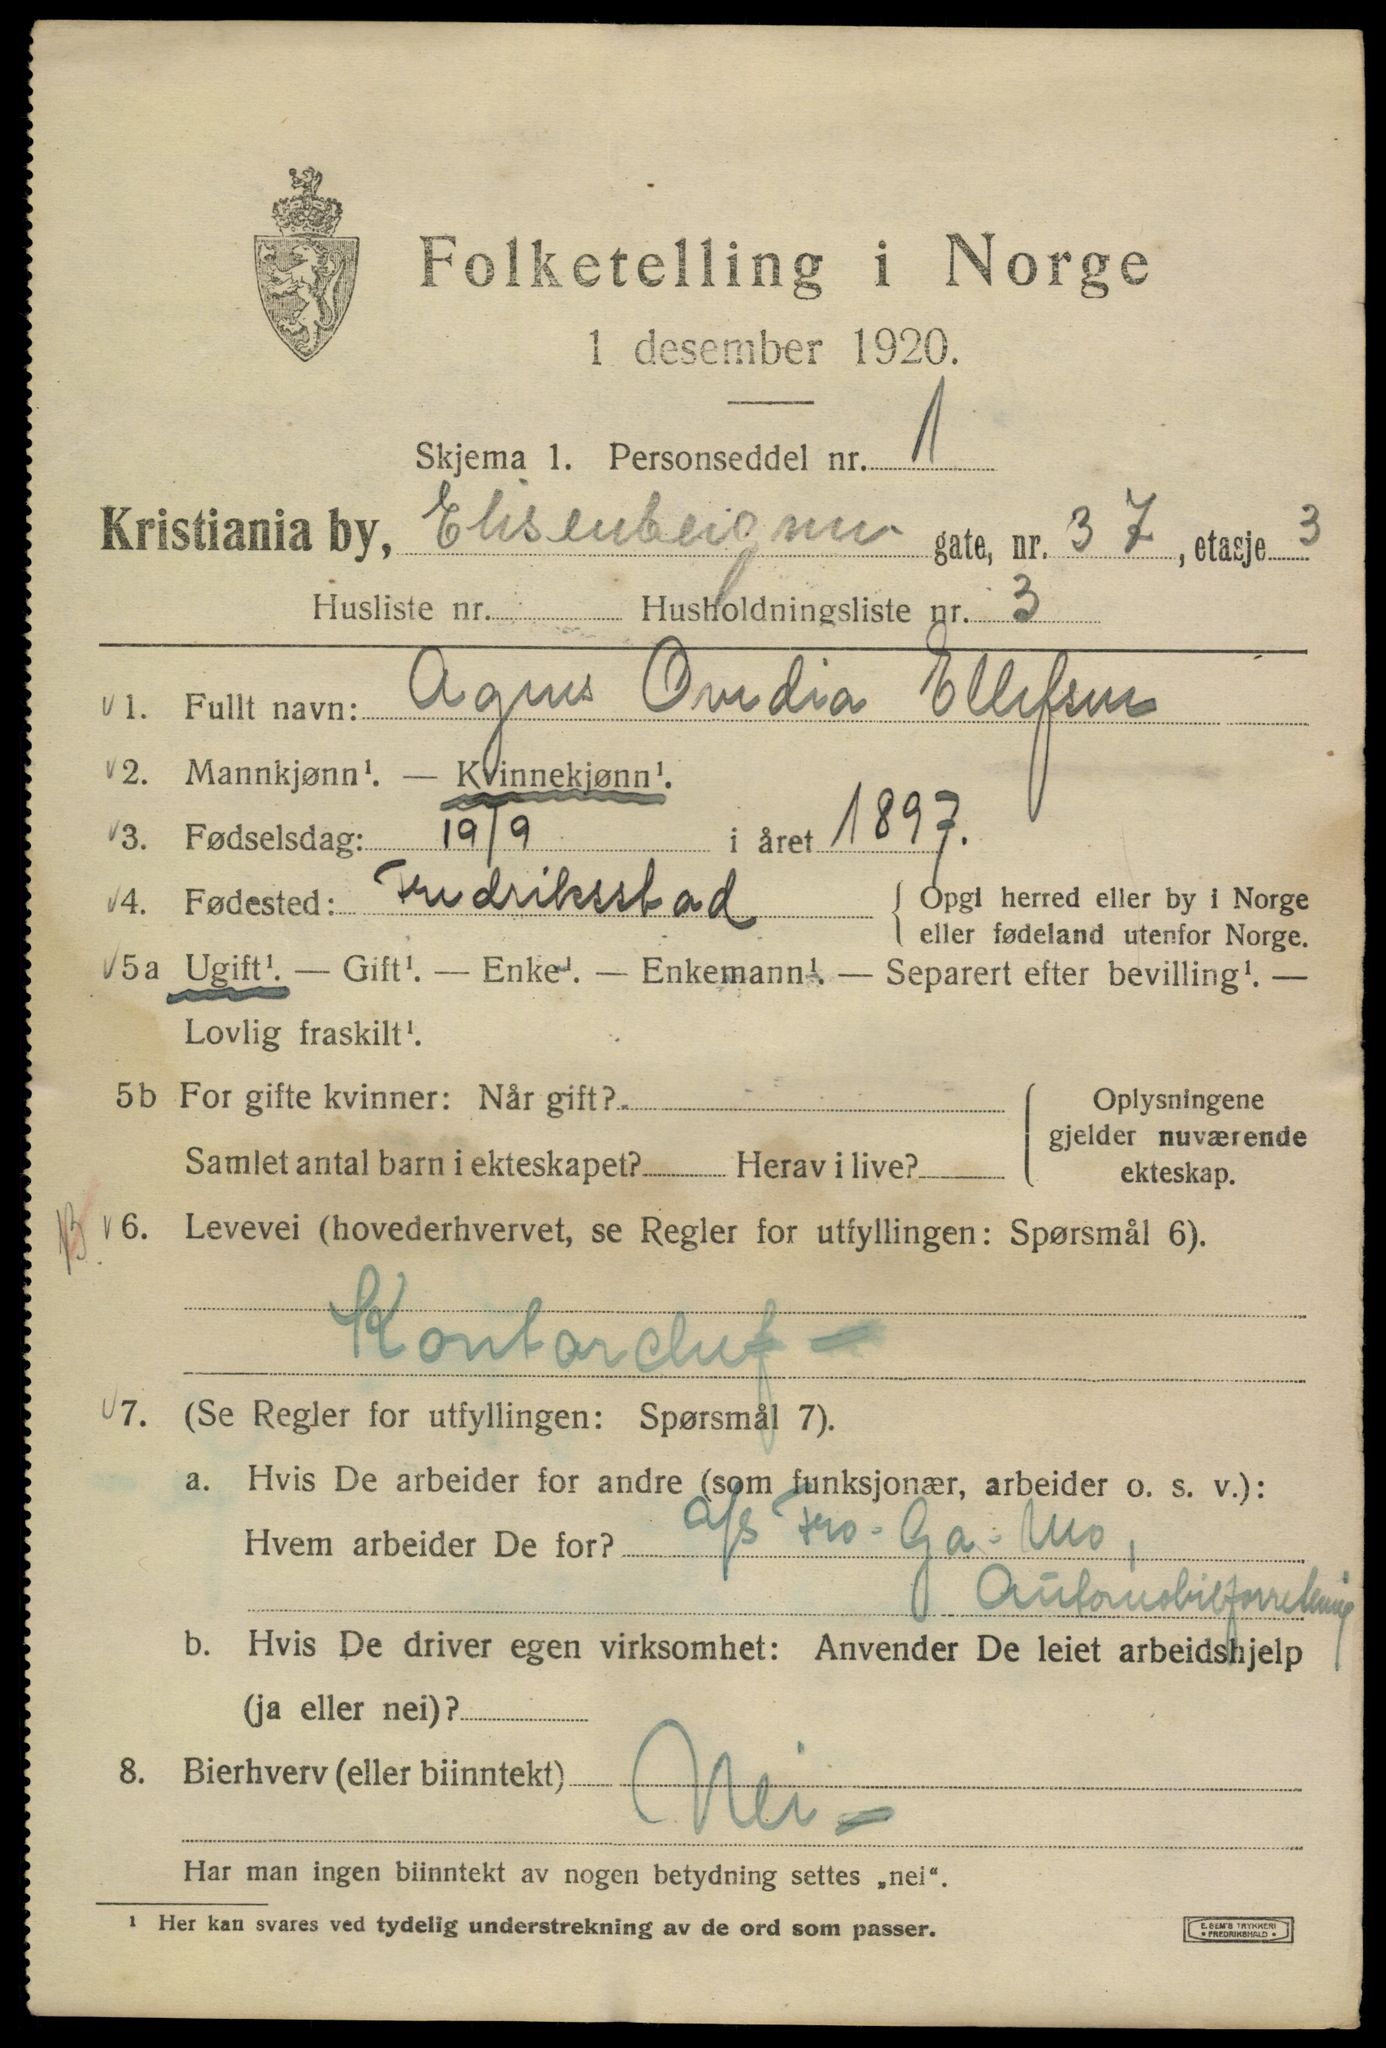 Folketelling i Norge
1 desember 1920.
Skjema 1. Personseddel nr. 1
Kristiania by, Elisenbergvn gate, nr. 37, etasje 3
Husliste nr. Husholdningsliste nr. 3
√1. Fullt navn: Agnes Ovedia Ellefsen
√2. Mannkjønn¹. — Kvinnekjønn¹.
√3. Fødselsdag: 19/9 i året 1897.
√4. Fødested: Fredriksstad { Opgi herred eller by i Norge
eller fødeland utenfor Norge.
√5a Ugift¹. — Gift¹. — Enke¹. — Enkemann¹. — Separert efter bevilling¹. —
Lovlig fraskilt¹.
5b For gifte kvinner: Når gift?
Samlet antal barn i ekteskapet? Herav i live?
Oplysningene
gjelder nuværende
ekteskap.
√6. Levevei (hovederhvervet, se Regler for utfyllingen: Spørsmål 6).
Kontorchef —
√7. (Se Regler for utfyllingen: Spørsmål 7).
a. Hvis De arbeider for andre (som funksjonær, arbeider o. s. v.):
Hvem arbeider De for? A/S Fro-Ga-Mo,
Automobilforretning
b. Hvis De driver egen virksomhet: Anvender De leiet arbeidshjelp
(ja eller nei)?
8. Bierhverv (eller biinntekt) Nei —
Har man ingen biinntekt av nogen betydning settes „nei“.
¹ Her kan svares ved tydelig understrekning av de ord som passer.
E. SEM'S TRYKKERI
• FREDRIKSHALD •